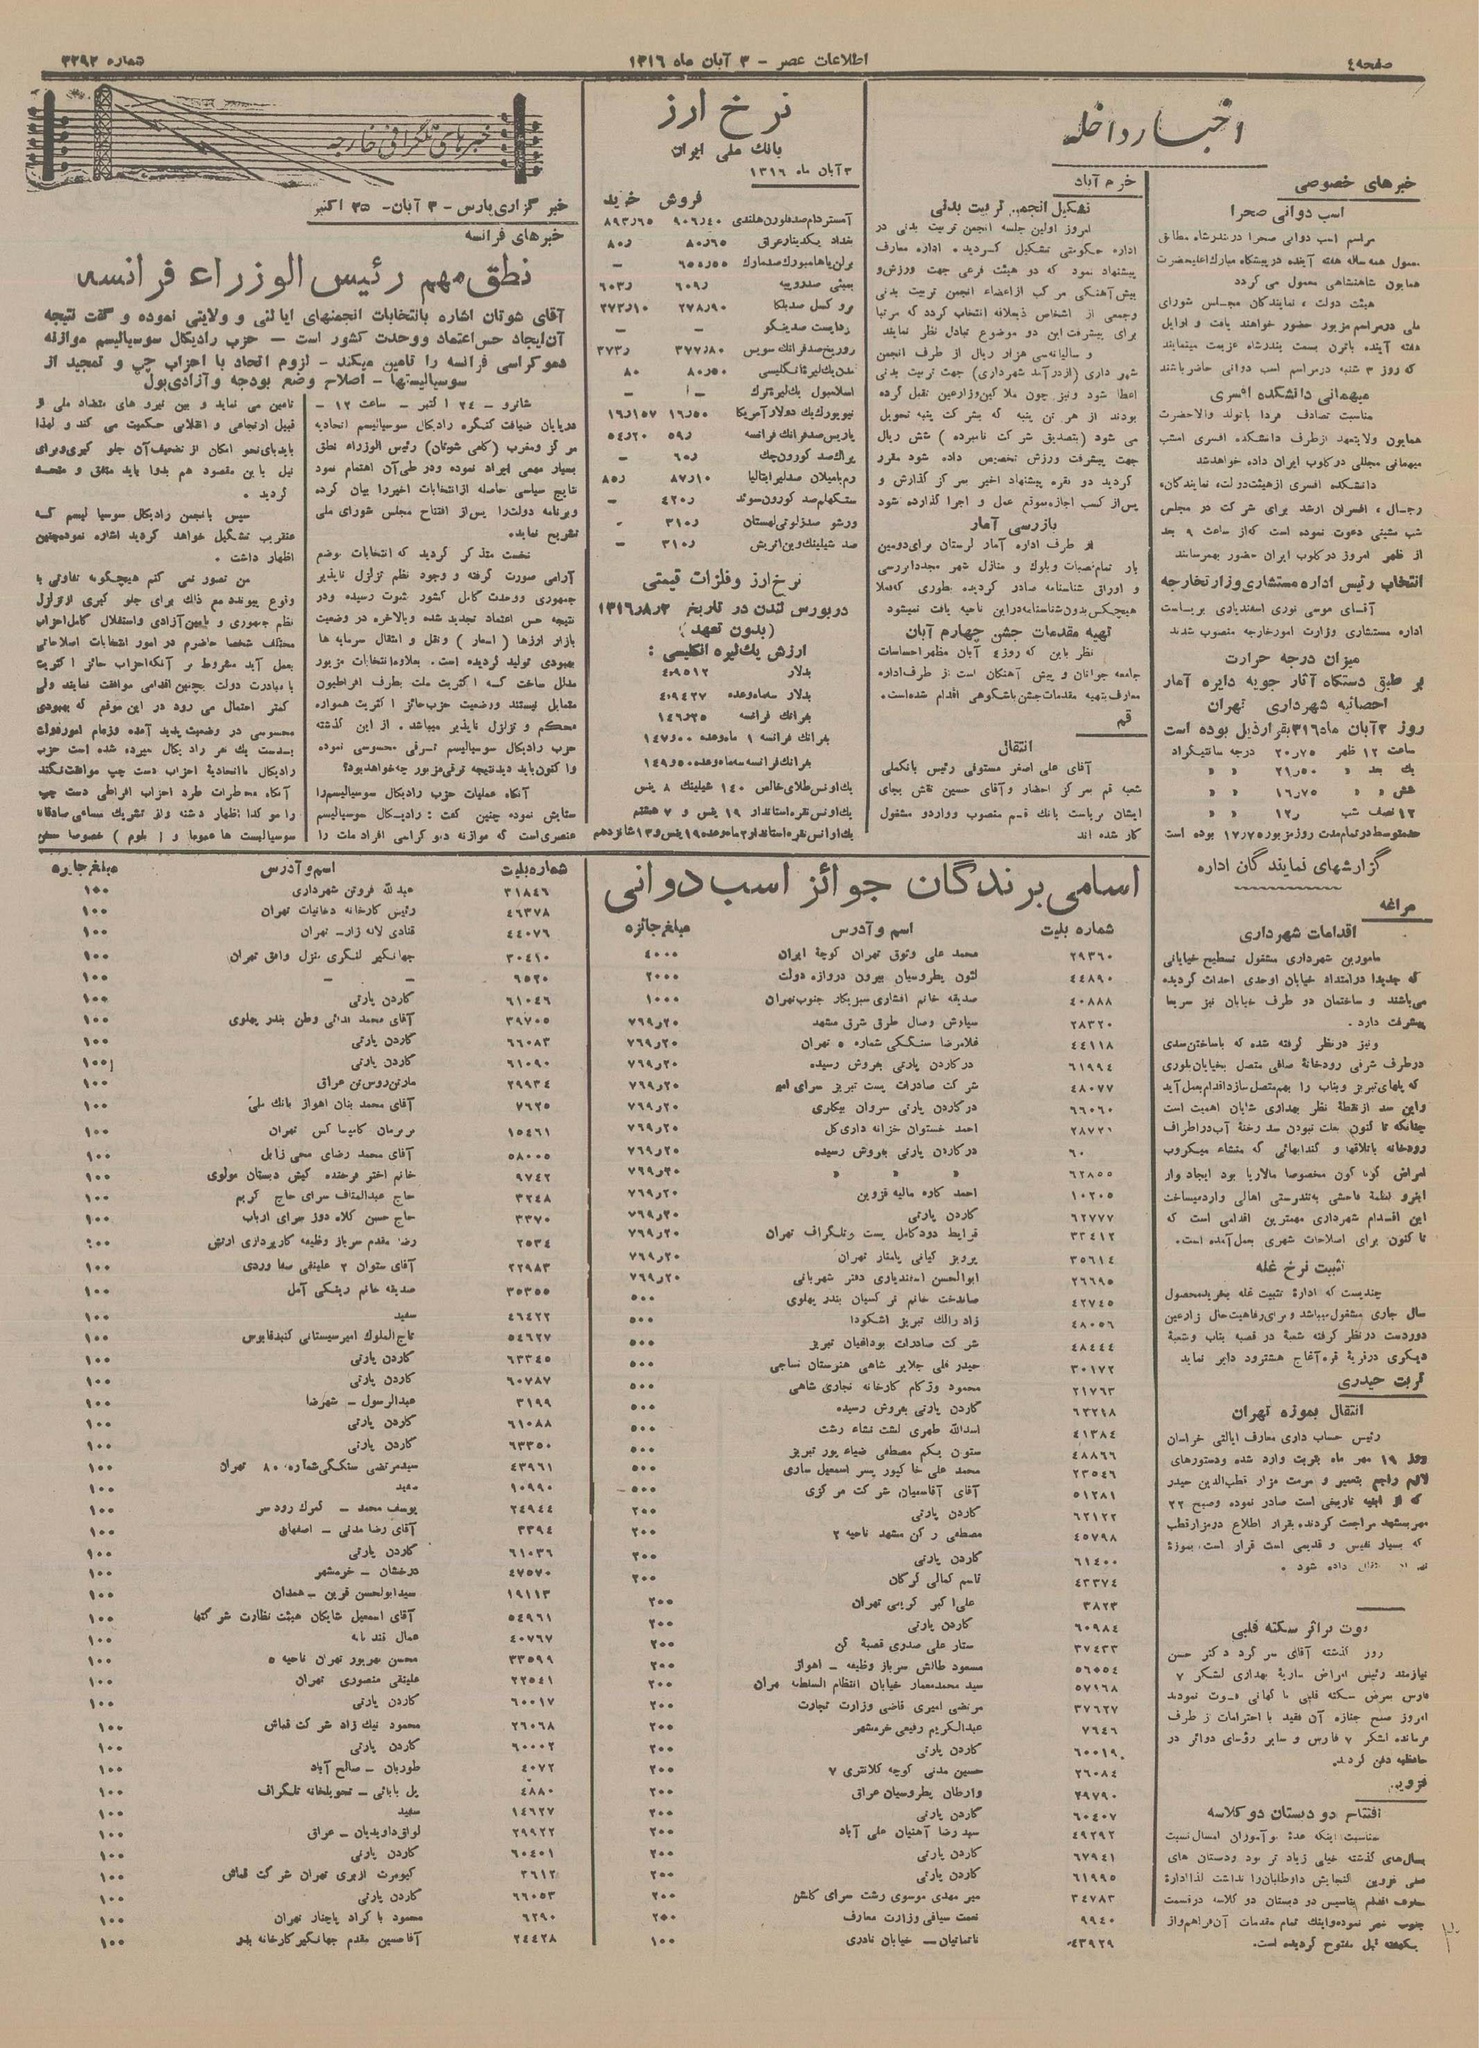 صفحه ٤
اطلاعات عصر - ۳ آبان ماه ۱۳۱۶
شماره ۳۲۹۲
اخبار داخله
خبرهای خصوصی
اسب دوانی صحرا
مراسم اسب دوانی صحرا در بندرشاه مطابق
معمول همه ساله هفته آینده در پیشگاه مبارک اعلیحضرت
همایون شاهنشاهی معمول می گردد
هیئت دولت ، نمایندگان مجلس شورای
ملی در مراسم مزبور حضور خواهند یافت و اوایل
هفته آینده باترن بسمت بندرشاه عزیمت مینمایند
که روز ۳ شنبه در مراسم اسب دوانی حاضر باشند
میهمانی دانشکده افسری
مناسبت تصادف فردا باتولد والاحضرت
همایون ولایتعهد از طرف دانشکده افسری امشب
میهمانی مجللی در کلوب ایران داده خواهد شد
دانشکده افسری از هیئت دولت، نمایندگان،
رجال ، افسران ارشد برای شرکت در مجلس
شب نشینی دعوت نموده است که از ساعت ۹ بعد
از ظهر امروز در کلوب ایران حضور بهمرسانند
انتخاب رئیس اداره مستشاری وزارتخارجه
آقای موسی نوری اسفندیاری بریاست
اداره مستشاری وزارت امور خارجه منصوب شدند
میزان درجه حرارت
بر طبق دستگاه آثار جویه دایره آمار
احصائیه شهرداری تهران
روز ۲ آبان ماه ۳۱۶ بقرار ذیل بوده است
ساعت ۱۲ ظهر ۲۰٫۷۵ درجه سانتیگراد
یک بعد » ۲۱٫۵۰ » »
شش » ۱۶٫۷۵ » »
۱۲ نصف شب ۱۲٫ » »
حد متوسط در تمام مدت روز مزبور ۱۷٫۷۵ بوده است
گزارشهای نمایندگان اداره
مراغه
اقدامات شهرداری
مأمورین شهرداری مشغول تسطیح خیابانی
که جدیدا در امتداد خیابان اوحدی احداث گردیده
می باشند و ساختمان دو طرف خیابان نیز سریعا
پیشرفت دارد .
ونیز در نظر گرفته شده که باساختن سدی
در طرف شرقی رودخانۀ صافی متصل بخیابان پهلوی
که پلهای تبریز و بناب را بهم متصل سازد اقدام بعمل آید
واین سد از نقطۀ نظر بهداری شایان اهمیت است
چنانکه تا کنون بعلت نبودن سد رخنۀ آب در اطراف
رودخانه باتلاقها و گندابهائی که منشاء میکروب
امراض گوناگون مخصوصا مالاریا بود ایجاد و از
اینرو لطمۀ فاحشی به تندرستی اهالی وارد میساخت
این اقدام شهرداری مهمترین اقدامی است که
تا کنون برای اصلاحات شهری بعمل آمده است.
تثبیت نرخ غله
چندیست که ادارۀ تثبیت غله بخرید محصول
سال جاری مشغول میباشد و برای رفاهیت حال زارعین
دوردست در نظر گرفته شعبۀ در قصبه بناب وشعبۀ
دیگری در قریۀ قره آغاج هشترود دایر نماید
تربت حیدری
انتقال بموزه تهران
رئیس حساب داری معارف ایالتی خراسان
روز ۱۹ مهر ماه بتربت وارد شده و دستورهای
لازم راجع بتعمیر و مرمت مزار قطب الدین حیدر
که از ابنیه تاریخی است صادر نموده و صبح ۲۲
مهر بمشهد مراجعت کردند، بقرار اطلاع در مزار قطب
که بسیار نفیس و قدیمی است قرار است بموزۀ
داده شود .
فوت براثر سکته قلبی
روز گذشته آقای سرگرد دکتر حسن
نیازمند رئیس امراض ساریۀ بهداری لشکر ۷
فارس بمرض سکته قلبی ناگهانی فوت نمودند
امروز صبح جنازه آن فقید با احترامات از طرف
فرمانده لشکر ۷ فارس و سایر رؤسای دوائر در
حافظیه دفن گردید.
قزوین
افتتاح دو دبستان دو کلاسه
بمناسبت اینکه عدۀ نوآموزان امسال نسبت
بسال های گذشته خیلی زیاد تر بود ودبستان های
ملی قزوین گنجایش داوطلبان را نداشت لذا ادارۀ
معارف اقدام بتاسیس دو دبستان دو کلاسه در قسمت
جنوب شهر نموده و اینک تمام مقدمات آن فراهم و از
یکهفته قبل مفتوح گردیده است.
خرم آباد
تشکیل انجمن تربیت بدنی
امروز اولین جلسه انجمن تربیت بدنی در
اداره حکومتی تشکیل گردید، اداره معارف
پیشنهاد نمود که دو هیئت فرعی جهت ورزش و
پیش آهنگی مرکب از اعضاء انجمن تربیت بدنی
وجمعی از اشخاص ذیعلاقه انتخاب گردد که مرتبا
برای پیشرفت این دو موضوع تبادل نظر نمایند
و سالیانه سی هزار ریال از طرف انجمن
شهر داری (از درآمد شهرداری) جهت تربیت بدنی
اعطا شود ونیز چون ملاکین و زارعین تقبل کرده
بودند از هر تن پنبه که بشرکت پنبه تحویل
می شود (بتصدیق شرکت نامبرده) شش ریال
جهت پیشرفت ورزش تخصیص داده شود مقرر
گردید دو نقره پیشنهاد اخیر بمرکز گذارش و
پس از کسب اجازه بموقع عمل و اجرا گذارده شود
بازرسی آمار
از طرف اداره آمار لرستان برای دومین
بار تمام قصبات وبلوک و منازل شهر مجددا بررسی
و اوراق شناسنامه صادر گردیده بطوری که فعلا
هیچکس بدون شناسنامه در این ناحیه یافت نمیشود
تهیه مقدمات جشن چهارم آبان
نظر باین که روز ٤ آبان مظهر احساسات
جامعه جوانان و پیش آهنگان است از طرف اداره
معارف بتهیه مقدمات جشن باشکوهی اقدام شده است.
قم
انتقال
آقای علی اصغر مستوفی رئیس بانک ملی
شعبه قم بمرکز احضار و آقای حسین نقاش بجای
ایشان بریاست بانک قم منصوب و وارد و مشغول
کار شده اند
نرخ ارز
بانک ملی ایران
۳ آبان ماه ۱۳۱۶
فروش خرید
آمستردام صد فلورن هلندی ۹۰۶٫٤۰ ۸۹۳٫۶۵
بغداد یکدینار عراق ۸۰٫۶۵ ۸۰٫
برلن یا هامبورک صدمارک ۶۵۸٫۵۵ —
بمبئی صد روپیه ۶۰۹٫ ۶۰۳٫
بروکسل صد بلکا ۲۷۸٫۹۰ ۲۷۳٫۱۰
بوداپست صد پنگو — —
زوریخ صد فرانک سویس ۳۷۷٫۸۰ ۳۷۳٫
لندن یک لیرۀ انگلیسی ۸۰٫۵۰ ۸۰
اسلامبول یک لیرۀ ترک — —
نیویورک یک دولار آمریکا ۱۶٫۵۰ ۱۶٫۱۵۷
پاریس صد فرانک فرانسه ۵۹٫ ۵٤٫۲۰
پراک صد کورون چک ۶۰٫ —
رم یا میلان صد لیر ایتالیا ۸۷٫۱۰ ۸۵٫
ستکهلم صد کورون سوئد ٤۲۰٫ —
ورشو صد زلوتی لهستان ۳۱۰٫ —
صد شیلینک وین اتریش ۳۱۰٫ —
نرخ ارز و فلزات قیمتی
در بورس لندن در تاریخ ۱۳۱۶٫۸٫۲
(بدون تعهد)
ارزش یک لیره انگلیسی :
بدلار ٤٫۹۵۱۲
بدلار سه ماه وعده ٤٫۹٤۲۷
بفرانک فرانسه ۱٤۶٫۲۵
بفرانک فرانسه ۱ ماه وعده ۱٤۷٫۰۰
بفرانک فرانسه سه ماه وعده ۱٤۹٫۵۰
یک اونس طلای خالص ۱٤۰ شیلینک ۸ پنس
یک اونس نقره استاندار ۱۹ پنس و ۷ هشتم
یک اونس نقره استاندار ۲ ماه وعده ۱۹ پنس و ۱۳ شانزدهم
خبرهای تلگرافی خارجه
خبر گزاری پارس - ۳ آبان - ۲۵ اکتبر
خبرهای فرانسه
نطق مهم رئیس الوزراء فرانسه
آقای شوتان اشاره بانتخابات انجمنهای ایالتی و ولایتی نموده و گفت نتیجه
آن ایجاد حس اعتماد و وحدت کشور است — حزب رادیکال سوسیالیسم موازنه
دموکراسی فرانسه را تامین میکند - لزوم اتحاد با احزاب چپ و تمجید از
سوسیالیستها - اصلاح وضع بودجه و آزادی پول
شاترو - ۲٤ اکتبر - ساعت ۱۲ -
در پایان ضیافت کنگره رادیکال سوسیالیسم اتحادیه
مرکز و مغرب (کامی شوتان) رئیس الوزراء نطق
بسیار مهمی ایراد نموده و در طی آن اهتمام نمود
نتایج سیاسی حاصله از انتخابات اخیر را بیان کرده
و برنامه دولت را پس از افتتاح مجلس شورای ملی
تشریح نماید.
نخست متذکر گردید که انتخابات بوضع
آرامی صورت گرفته و وجود نظم تزلزل ناپذیر
جمهوری و وحدت کامل کشور ثبوت رسیده و در
نتیجه حس اعتماد تجدید شده و بالاخره در وضعیت
بازار ارزها ( اسعار ) و نقل و انتقال سرمایه ها
بهبودی تولید گردیده است. بعلاوه انتخابات مزبور
مدلل ساخت که اکثریت ملت بطرف افراطیون
متمایل نیستند و وضعیت حزب حائز اکثریت همواره
محکم و تزلزل ناپذیر میباشد. از این گذشته
حزب رادیکال سوسیالیسم ترقی محسوسی نموده
و اکنون باید دید نتیجه ترقی مزبور چه خواهد بود؟
آنگاه عملیات حزب رادیکال سوسیالیسم را
ستایش نموده چنین گفت : رادیکال سوسیالیسم
عنصری است که موازنه دموکراسی افراد ملت را
تامین می نماید و بین نیرو های متضاد ملی از
قبیل ارتجاعی و انقلابی حکمیت می کند و لهذا
باید بای نحو امکان از تضعیف آن جلوگیری و برای
نیل باین مقصود هم بدوا باید متفق و متحد
گردید .
سپس بانجمن رادیکال سوسیالیسم که
عنقریب تشکیل خواهد گردید اشاره نموده چنین
اظهار داشت .
من تصور نمی کنم هیچگونه تفاوتی با
وقوع بپیوندد مع ذلک برای جلوگیری از تزلزل
نظم جمهوری و تأمین آزادی واستقلال کامل احزاب
مختلف شخصا حاضرم در امور انتخابات اصلاحاتی
بعمل آید مشروط بر آنکه احزاب حائز اکثریت
با مبادرت دولت بچنین اقدامی موافقت نمایند ولی
کمتر احتمال می رود در این موقع که بهبودی
محسوسی در وضعیت پدید آمده و زمام امور دولت
بدست یک نفر رادیکال سپرده شده است حزب
رادیکال با اتحادیۀ احزاب دست چپ موافقت نکند
آنگاه مخطرات طرد احزاب افراطی دست چپ
را مؤکدا اظهار داشته و از تشریک مساعی صادقانۀ
سوسیالیست ها عموما و ( بلوم ) خصوصا سخن
اسامی برندگان جوائز اسب دوانی
شماره بلیت اسم و آدرس مبلغ جائزه
۲۹۳۶۰ محمد علی وثوق تهران کوچۀ ایران ٤۰۰۰
٤٤۸۹۰ لئون پطروسیان بیرون دروازه دولت ۲۰۰۰
٤۰۸۸۸ صدیقه خانم افشاری سبزیکار جنوب تهران ۱۰۰۰
۲۸۳۲۰ سیاوش وصال طرق شرق مشهد ۷۶۹٫۲۰
٤٤۱۱۸ غلامرضا سنگکی شماره ۵ تهران ۷۶۹٫۲۰
۶۱۹۹٤ در گاردن پارتی بفروش رسیده ۷۶۹٫۲۰
٤۸۰۷۷ شرکت صادرات پست تبریز سرای امیر ۷۶۹٫۲۰
۶۶۰۶۰ در گاردن پارتی سروان بیگلری ۷۶۹٫۲۰
۲۸۷۲۱ احمد خستوان خزانه داری کل ۷۶۹٫۲۰
۶۰ در گاردن پارتی بفروش رسیده ۷۶۹٫۲۰
۶۲۸۵۵ » » » ۷۶۹٫۲۰
۱۰۲۰۵ احمد کاره مالیه قزوین ۷۶۹٫۲۰
۶۲۷۷۷ گاردن پارتی ۷۶۹٫۲۰
۳۲٤۱۲ قرایط دودکامل پست و تلگراف تهران ۷۶۹٫۲۰
۳۵۶۱٤ پرویز کیانی پامنار تهران ۷۶۹٫۲۰
۲۶۶۹۵ ابوالحسن اسفندیاری دفتر شهربانی ۷۶۹٫۲۰
٤۲۷٤۵ صاندخت خانم نرکسیان بندر پهلوی ۵۰۰
٤۸۰۵۶ زاد رالک تبریز اشکودا ۵۰۰
٤۸٤٤٤ شرکت صادرات بوداقیان تبریز ۵۰۰
۳۰۱۷۲ حیدر قلی جلایر شاهی هنرستان نساجی ۵۰۰
۲۱۷۶۳ محمود وزکام کارخانه نجاری شاهی ۵۰۰
۶۳۲۹۸ گاردن پارتی بفروش رسیده ۵۰۰
٤۱۳۸٤ اسدالله طهری لشت نشاء رشت ۵۰۰
٤۸۸۶۶ ستوان یکم مصطفی ضیاء پور تبریز ۵۰۰
۲۳۵٤۶ محمد علی خاکپور پسر اسمعیل ساری ۵۰۰
۵۱۲۸۱ آقای آقاسمیان شرکت مرکزی ۵۰۰
۶۲۱۲۲ گاردن پارتی ۲۰۰
٤۵۷۹۸ مصطفی رکن مشهد ناحیه ۲ ۲۰۰
۶۱٤۰۰ گاردن پارتی ۲۰۰
٤۳۳۷٤ قاسم کمالی گرگان ۲۰۰
۳۸۲۳ علی اکبر کریمی تهران ۲۰۰
۶۰۹۸٤ گاردن پارتی ۲۰۰
۳۷٤۳۳ ستار علی صدوی قصبۀ کن ۲۰۰
۵۶۵۵٤ مسعود طالش سرباز وظیفه - اهواز ۲۰۰
۵۷۱۶۸ سید محمد معمار خیابان انتظام السلطنه تهران ۲۰۰
۳۷۶۲۷ مرتضی امیری قاضی وزارت تجارت ۲۰۰
۷۶٤۶ عبدالکریم رفیعی خرمشهر ۲۰۰
۶۰۰۱۹ گاردن پارتی ۲۰۰
۲۶۰۸٤ حسین مدنی کوچه کلانتری ۷ ۲۰۰
۲۹۷۹۰ وارطان پطروسیان عراق ۲۰۰
۶۰٤۰۷ گاردن پارتی ۲۰۰
٤۹۲۹۲ سید رضا آهنیان علی آباد ۲۰۰
۶۷۹٤۱ گاردن پارتی ۲۰۰
۶۱۹۹۵ گاردن پارتی ۲۰۰
۳٤۷۸۳ میر مهدی موسوی رشت سرای کاشن ۲۰۰
۹۹٤۰ نعمت سیافی وزارت معارف ۲۰۰
٤۳۹۲۹ ناتمانیان — خیابان نادری ۱۰۰
شماره بلیت اسم و آدرس مبلغ جایزه
۳۱۸٤۶ عبدالله فروتن شهرداری ۱۰۰
٤۶۳۷۸ رئیس کارخانه دخانیات تهران ۱۰۰
٤٤۰۷۶ قنادی لاله زار - تهران ۱۰۰
۳۰٤۱۰ جهانگیر لنگری منزل واثق تهران ۱۰۰
۶۵۲۰ — — ۱۰۰
۶۱۰٤۶ گاردن پارتی ۱۰۰
۳۹۷۰۵ آقای محمد فدائی وطن بندر پهلوی ۱۰۰
۶۶۰۸۳ گاردن پارتی ۱۰۰
۶۱۰۹۰ گاردن پارتی ۱۰۰
۲۹۹۳٤ مارتن روس تن عراق ۱۰۰
۷۶۲۵ آقای محمد بنان اهواز بانک ملی ۱۰۰
۱۵٤۶۱ نریمان کامپساکس تهران ۱۰۰
۵۸۰۰۵ آقای محمد رضای محی زابل ۱۰۰
۹۷٤۲ خانم اختر فرخنده کیش دبستان مولوی ۱۰۰
۳۲٤۸ حاج عبدالمناف سرای حاج کریم ۱۰۰
۳۳۷۰ حاج حسن کلاه دوز سرای ارباب ۱۰۰
۲۵۳٤ رضا مقدم سرباز وظیفه کارپردازی ارتش ۱۰۰
۲۲۹۸۳ آقای ستوان ۲ علینقی صفاوردی ۱۰۰
۳۵۳۵۵ صدیقه خانم ریشکی آمل ۱۰۰
٤۶٤۲۲ سفید ۱۰۰
۵٤۶۲۷ تاج الملوک امیر سیستانی گنبد قابوس ۱۰۰
۶۳۳٤۵ گاردن پارتی ۱۰۰
۶۰۷۸۷ گاردن پارتی ۱۰۰
۳۱۹۹ عبدالرسول - شهرضا ۱۰۰
۶۱۰۸۸ گاردن پارتی ۱۰۰
۶۳۳۵۰ گاردن پارتی ۱۰۰
٤۳۹۶۱ سید مرتضی سنگکی شماره ۸۰ تهران ۱۰۰
۱۰۹۹۰ سفید ۱۰۰
۲٤۹٤٤ یوسف محمد - گمرک رود سر ۱۰۰
۳۳۹٤ آقای رضا مدنی - اصفهان ۱۰۰
۶۱۰۳۶ گاردن پارتی ۱۰۰
٤۷۵۷۰ درخشان - خرمشهر ۱۰۰
۱۹۱۱۳ سید ابوالحسن قرین - همدان ۱۰۰
۵٤۹۶۱ آقای اسمعیل شایگان هیئت نظارت شرکتها ۱۰۰
٤۰۷۶۷ عمال ۱۰۰
۳۳۵۹۹ محسن بهرپور تهران ناحیه ۵ ۱۰۰
۲۲۵٤۱ علینقی منصوری تهران ۱۰۰
۶۰۰۱۷ گاردن پارتی ۱۰۰
۲۶۰۶۸ محمود نیک زاد شرکت قماش ۱۰۰
۶۰۰۰۲ گاردن پارتی ۱۰۰
٤۰۷۲ طوریان - صالح آباد ۱۰۰
٤۸۸۰ پل بابائی - تحویلخانه تلگراف ۱۰۰
۱٤۶۲۷ سفید ۱۰۰
۲۹۹۲۲ لواق داویدیان - عراق ۱۰۰
۶۰٤۰۱ گاردن پارتی ۱۰۰
۳۶۱۲ کیومرث اژیری تهران شرکت قماش ۱۰۰
۶۶۰۵۳ گاردن پارتی ۱۰۰
۶۲۹۰ محمود باکراد پاچنار تهران ۱۰۰
۲٤٤۲۸ آقا حسین مقدم جهانگیر کارخانه بلور ۱۰۰